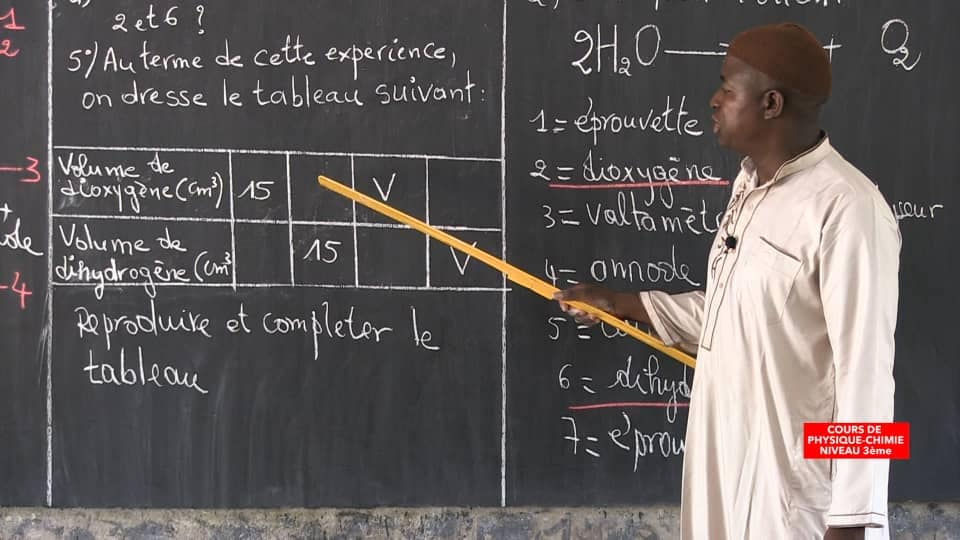 1
2
2 et 6 ?
5°) Au terme de cette expérience,
on dresse le tableau suivant :
3
Volume de
dioxygène (cm³) 15 V
Volume de
dihydrogène (cm³ 15 V
4
Reproduire et completer le
tableau
2H₂O → + O₂
1 = éprouvette
2 = dioxygène
3 = voltamèt
4 = annode
5 =
6 = dihyd
7 = éprou
COURS DE
PHYSIQUE-CHIMIE
NIVEAU 3ème